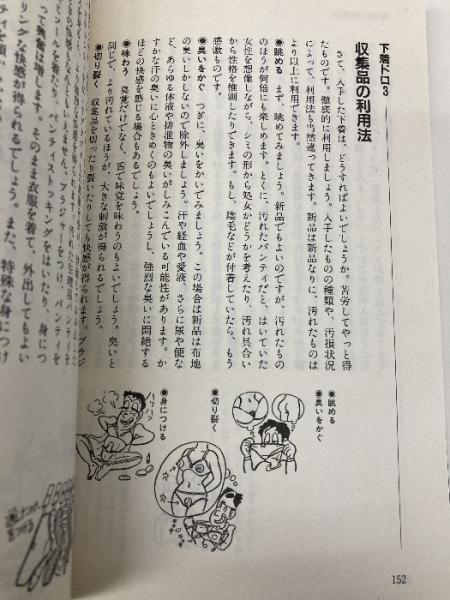 下着ドロ3
収集品の利用法
さて、入手した下着は、どうすればよいでしょうか。苦労してやっと得
たものです。徹底的に利用しましょう。入手したものの種類や、汚損状況
によって、利用法も当然違ってきます。新品は新品なりに、汚れたものは
より以上に利用できます。
●眺める まず、眺めてみましょう。新品でもよいのですが、汚れたもの
のほうが何倍にも楽しめます。とくに、汚れたパンティだと、はいていた
女性を想像しながら、シミの形から処女かどうかを考えたり、汚れ具合い
から性格を推測したりできます。もし、陰毛などが付着していたら、もう
感激ものです。
●臭いをかぐ つぎに、臭いをかいでみましょう。この場合は新品は布地
の臭いしかしないので除外しましょう。汗や経血や愛液、さらに尿や便な
ど、あらゆる体液や排泄物の臭いがしみこんでいる可能性があります。か
すかな汗の臭いに心ときめくのもよいでしょうし、強烈な臭いに悶絶する
ほどの快感を感じる場合もあるでしょう。
●味わう 臭覚だけでなく、舌で味覚を味わうのもよいでしょう。臭いと
同じで、より汚れているほうが、大きな刺激が得られるでしょう。
●切り裂く 収集品を切ったり裂いたりしても快感が得られます。ブラジ
●眺める
●臭いをかぐ
●切り裂く
●身につける
152
ブラジャーをつけ、パン
ールを塗たり、パンティストキングをはいたり、身につ
って興奮は増します。そのまま衣服を着て、外出してもよい
リングな快感が得られるでしょう。また、特殊な身につけ